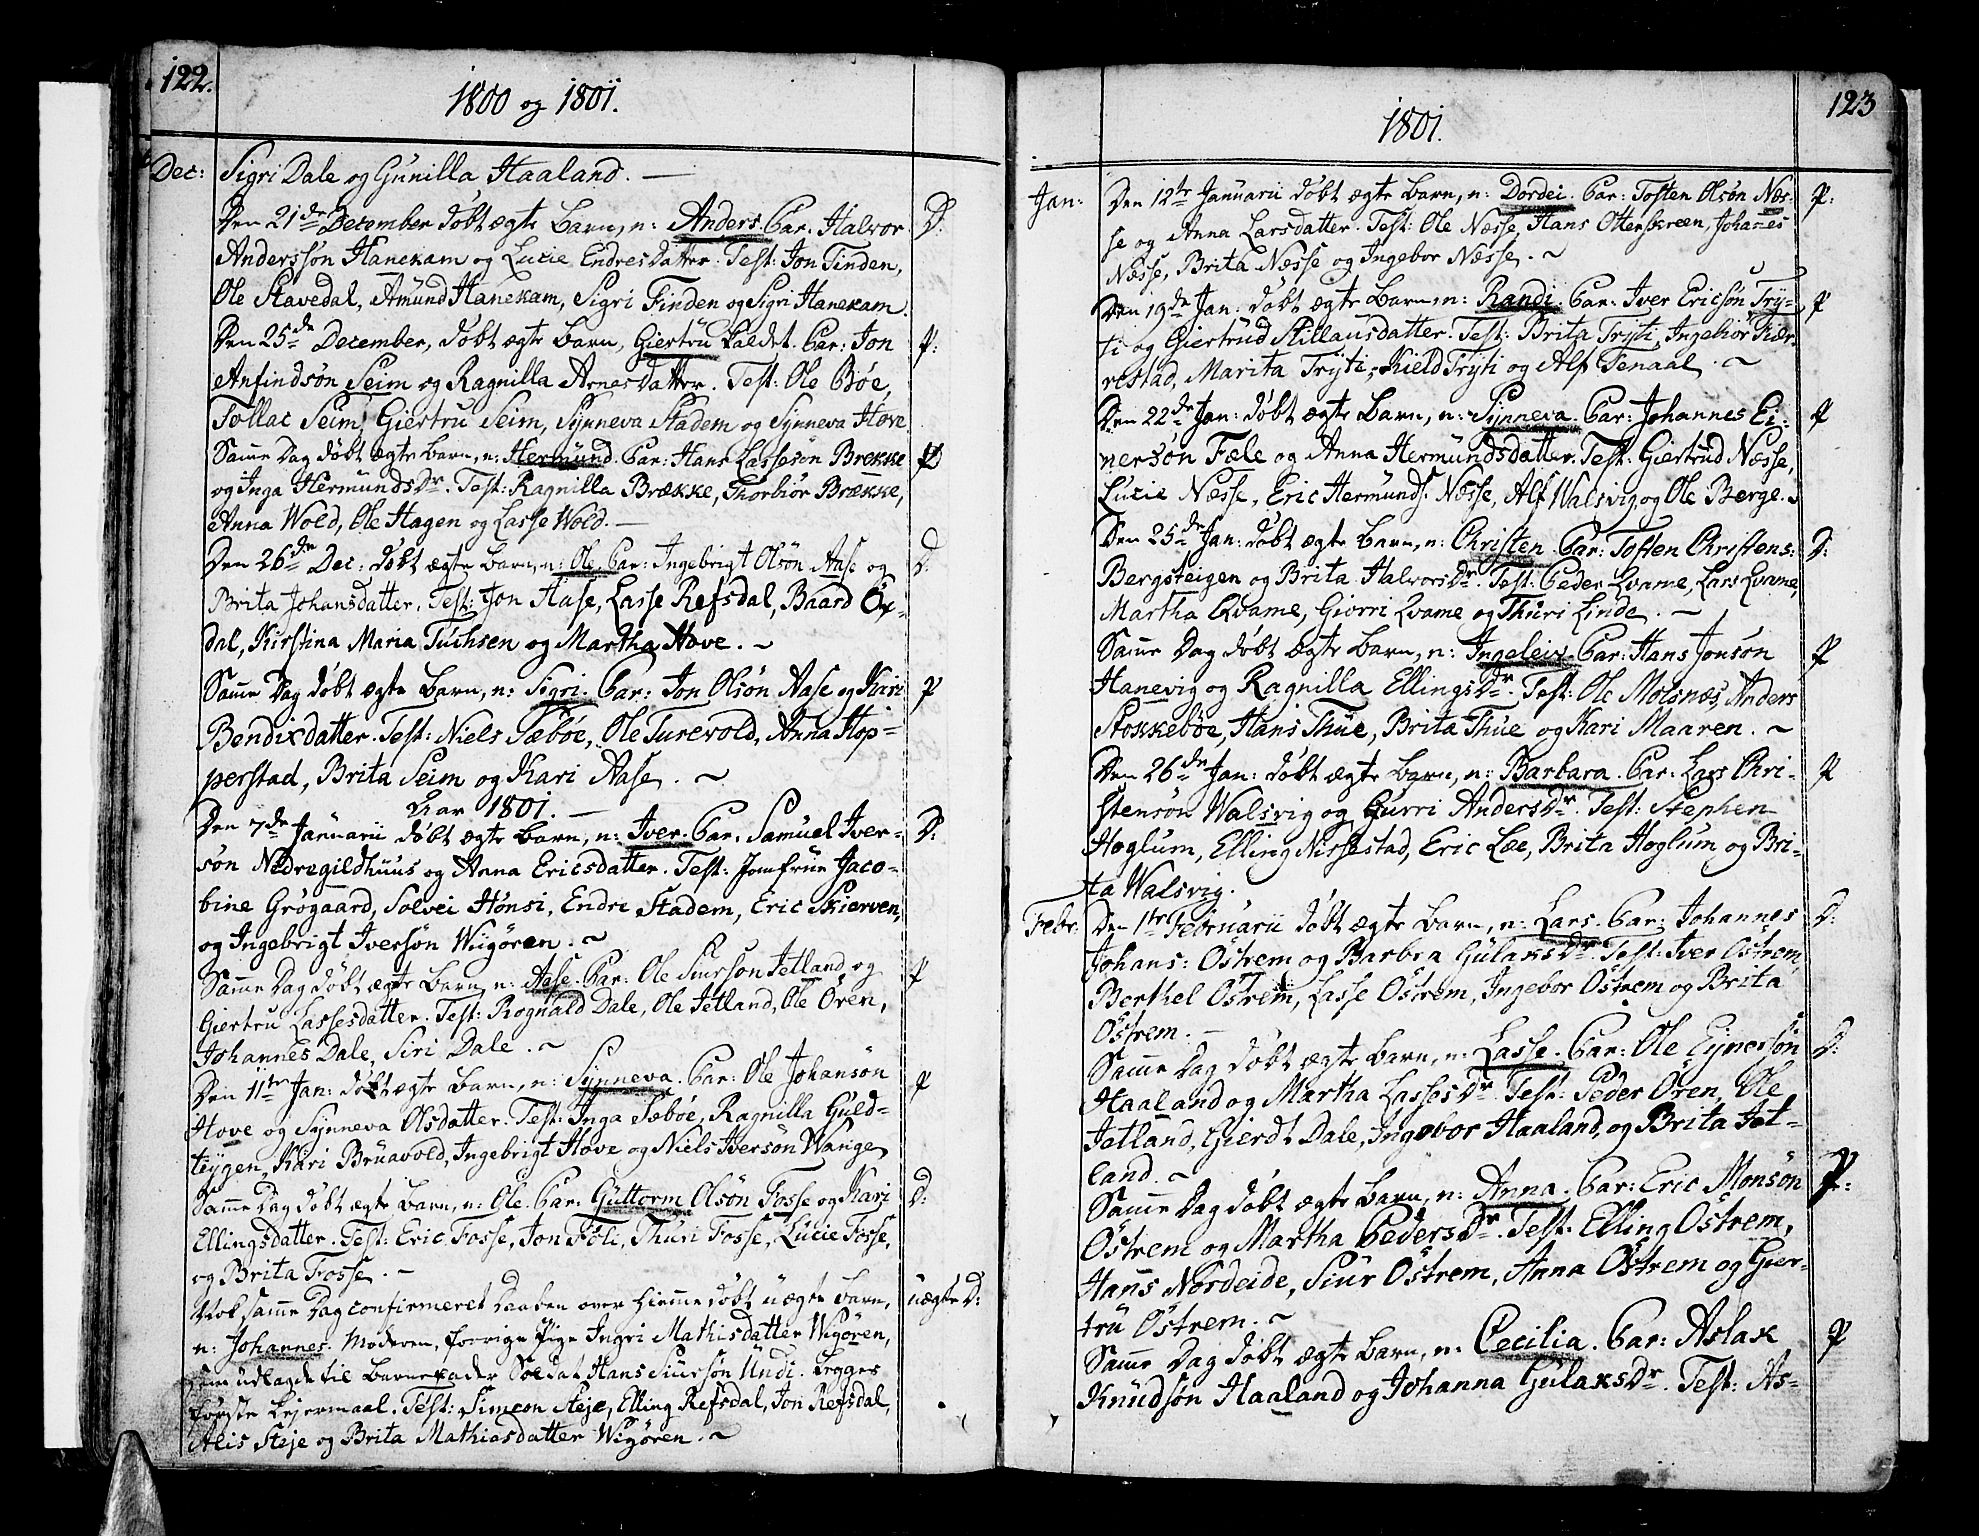 122.
1800 og 1801.
Dec: Sigri Dale og Gunilla Haaland. —
Den 21de December døbt ægte Barn, n: Anders. Par. Halvor D.
Anderssøn Hanekam og Lucie Endresdatter. Test: Jon Finden,
Ole Stavedal, Amund Hanekam, Sigri Finden og Sigri Hanekam.
Den 25de December, døbt ægte Barn, Giertru kaldet. Par: Jon P:
Anfindsøn Seim og Ragnilla Arnesdatter. Test: Ole Bøe,
Tollac Seim, Giertru Seim, Synneva Stadem og Synneva Hove.
Samme Dag døbt ægte Barn, n: Hermund. Par: Hans Lassesøn Brekke
og Inga HermundsDr. Test: Ragnilla Brække, Thorbiør Brække,
Anna Wold, Ole Hagen og Lasse Wold. —
Den 26de Dec: døbt ægte Barn, n: Ole. Par: Ingebrigt Olsøn Aase og D.
Brita Johansdatter. Test: Jon Aase, Lasse Refsdal, Baard Ox-
dal, Kirstina Maria Tuchsen og Martha Hove. ~
Samme Dag døbt ægte Barn, n: Sigri. Par: Jon Olsøn Aase og Kari P
Bendixdatter. Test: Niels Sæbøe, Ole Turevold, Anna Hop-
perstad, Brita Seim og Kari Aase. ~
Aar 1801. —
Den 7de Januarii døbt ægte Barn, n: Iver. Par. Samuel Iver- D:
søn Nedregildhuus og Anna Ericsdatter. Test: Jomfrue Jaco-
bine Grøgaard, Solvei Hønsi, Endre Stadem, Eric Skierven,
og Ingebrigt Iversøn Wigøren. ~
Samme Dag døbt ægte Barn, n: Aase. Par: Ole Siursøn Jetland og P
Giertru Lassesdatter. Test: Rognald Dale, Ole Jetland, Ole Øren,
Johannes Dale, Siri Dale. ~
Den 11te Jan: døbt ægte Barn, n: Synneva. Par: Ole Johansøn P
Hove og Synneva Olsdatter. Test: Inga Sæbøe, Ragnilla Guld-
teygen, Kari Bruavold, Ingebrigt Hove og Niels Iversøn Wange
Samme Dag døbt ægte Barn, n: Ole. Par: Guttorm Olsøn Fosse og Kari D:
Ellingsdatter. Test: Eric Fosse, Jon Føli, Thuri Fosse, Lucie Fosse,
og Brita Fosse. —
Nok samme Dag confirmeret Daaben over hiemme døbt uægte Barn, uægte D:
n: Johannes. Moderen, forrige Pige Ingri Mathisdatter Wigøren,
som udlagde til Barnefader Soldat Hans Siursøn Undi. Begges
første Lejermaal. Test: Simeon Steje, Elling Refsdal, Jon Refsdal,
Alis Steje og Brita Mathiasdatter Wigøren. ~
123
1801.
Jan: Den 12te Januarii døbt ægte Barn, n: Dordei. Par: Tosten Olsøn Næs- P:
se og Anna Larsdatter. Test: Ole Næsse, Hans Otterskreen, Johanes
Næsse, Brita Næsse og Ingebor Næsse. ~
Den 19de Jan. døbt ægte Barn, n: Randi. Par: Iver Ericsøn Try- P
ti og Giertrud Stillausdatter. Test: Brita Tryti, Ingebiør Kiær-
restad, Marita Tryti, Kield Tryti og Alf Fenaal. ~
Den 22de Jan: døbt ægte Barn, n: Synneva. Par: Johannes Ei- P
nersøn Fæle og Anna Hermundsdatter. Test: Giertrud Næsse,
Lucie Næsse, Eric Hermunds. Næsse, Alf Walsvig, og Ole Berge.
Den 25de Jan: døbt ægte Barn, n: Christen. Par: Tosten Christens: D:
Bergsteigen og Brita HalvorsDr. Test: Peder Qvame, Lars Qvame,
Martha Qvame, Giorri Qvame og Thuri Linde. ~
Samme Dag døbt ægte Barn, n: Ingeleiv. Par: Hans Jonsøn P
Hanevig og Ragnilla EllingsDr. Test: Ole Molsnæs, Anders
Stokkebøe, Hans Thue, Brita Thue og Kari Maaren. ~
Den 26de Jan: døbt ægte Barn, n: Barbara. Par: Lars Chri- P
stensøn Walsvig og Gurri AndersDr. Test: Stephen
Høglum, Elling Nissestad, Eric Lœe, Brita Høglum og Bri-
ta Walsvig.
Febr: Den 1te Februarii døbt ægte Barn, n: Lars. Par: Johannes D:
Johans: Østrem og Barbra GulaksDr. Test: Iver Østrem,
Berthel Østrem, Lasse Østrem, Ingebor Østrem og Brita
Østrem. —
Samme Dag døbt ægte Barn, n: Lasse. Par: Ole Ejnersøn D:
Haaland og Martha LassesDr. Test: Peder Øren, Ole
Jetland, Gierdt Dale, Ingebor Haaland, og Brita Jet-
land. ~
Samme Dag døbt ægte Barn, n: Anna. Par: Eric Monsøn P:
Østrem og Martha PedersDr. Test: Elling Østrem,
Hans Nordeide, Siur Østrem, Anna Østrem og Gier-
tru Østrem. ~
Samme Dag døbt ægte Barn, n: Cecilia. Par: Aslak P
Knudsøn Haaland og Johanna GulaksDr. Test: As-